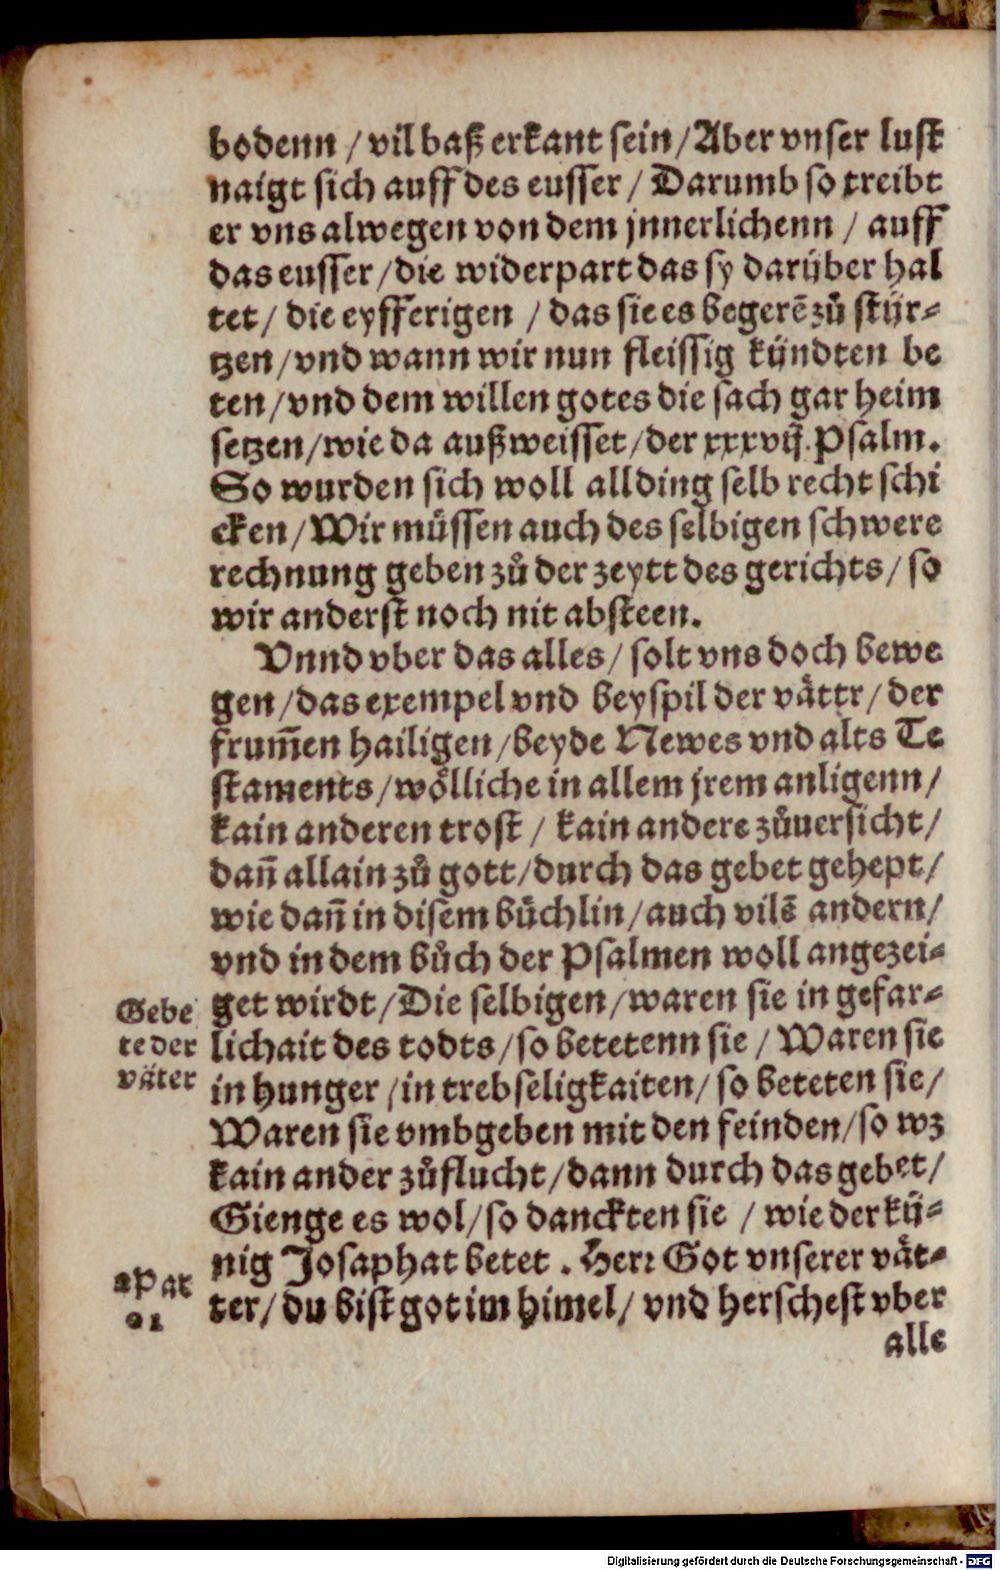 bodenn / vil baß erkant sein / Aber vnser lust
naigt sich auff des eusser / Darumb so treibt
er vns alwegen von dem jnnerlichenn / auff
das eusser / die widerpart das sy darüber hal
tet / die eyfferigen / das sie es begerē zů stür-
tzen / vnd wann wir nun fleissig kündten be
ten / vnd dem willen gotes die sach gar heim
setzen / wie da außweisset / der xxxvij. Psalm.
So wurden sich woll allding selb recht schi
cken / Wir müssen auch des selbigen schwere
rechnung geben zů der zeytt des gerichts / so
wir anderst noch nit absteen.
Vnnd vber das alles / solt vns doch bewe
gen / das exempel vnd beyspil der vättr / der
frum̄en hailigen / beyde Newes vnd alts Te
staments / wölliche in allem jrem anligenn /
kain anderen trost / kain andere zůuersicht /
dan̄ allain zů gott / durch das gebet gehept /
wie dan̄ in disem büchlin / auch vilē andern /
vnd in dem bůch der Psalmen woll angezei-
Gebe
te der
väter
get wirdt / Die selbigen / waren sie in gefar-
lichait des todts / so betetenn sie / Waren sie
in hunger / in trebseligkaiten / so beteten sie /
Waren sie vmbgeben mit den feinden / so wz
kain ander zůflucht / dann durch das gebet /
Gienge es wol / so danckten sie / wie der kü-
nig Josaphat betet . Herr Got vnserer vät-
2 Par
ter / du bist got im himel / vnd herschest vber
alle
Digitalisierung gefördert durch die Deutsche Forschungsgemeinschaft - DFG